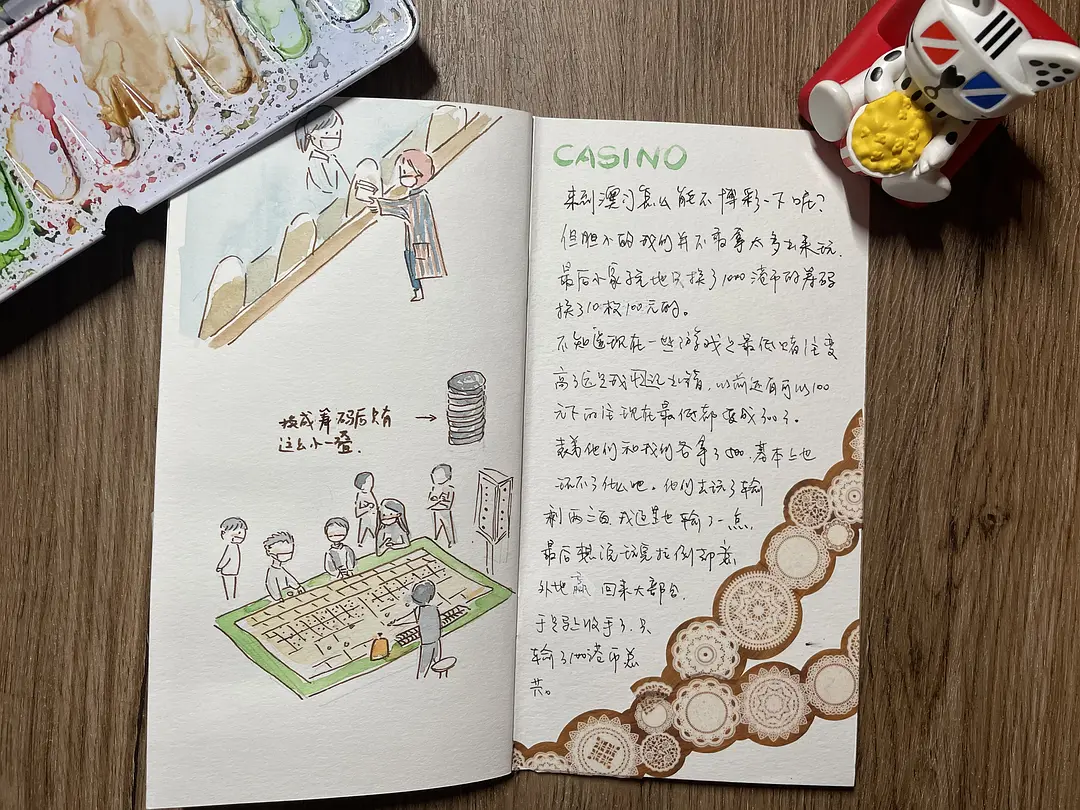 换成筹码后只有
这么小一叠.
CASINO
来到澳门怎么能不博彩一下呢?
但胆小的我们并不敢拿太多出来玩.
最后小家子气地只换了1000港币的筹码
换了10枚100元的。
不知道现在一些游戏之最低赌注变
高了还是我记错,以前还有可以100
元下的注现在最低都变成300了.
他们和我们各拿了500.基本上也
玩不了什么吧。他们去玩了输
剩两三百.我这里也输了一点.
最后想说玩完拉倒却意
外地赢回来大部分.
于是马上收手了.只
输了100港币总
共。